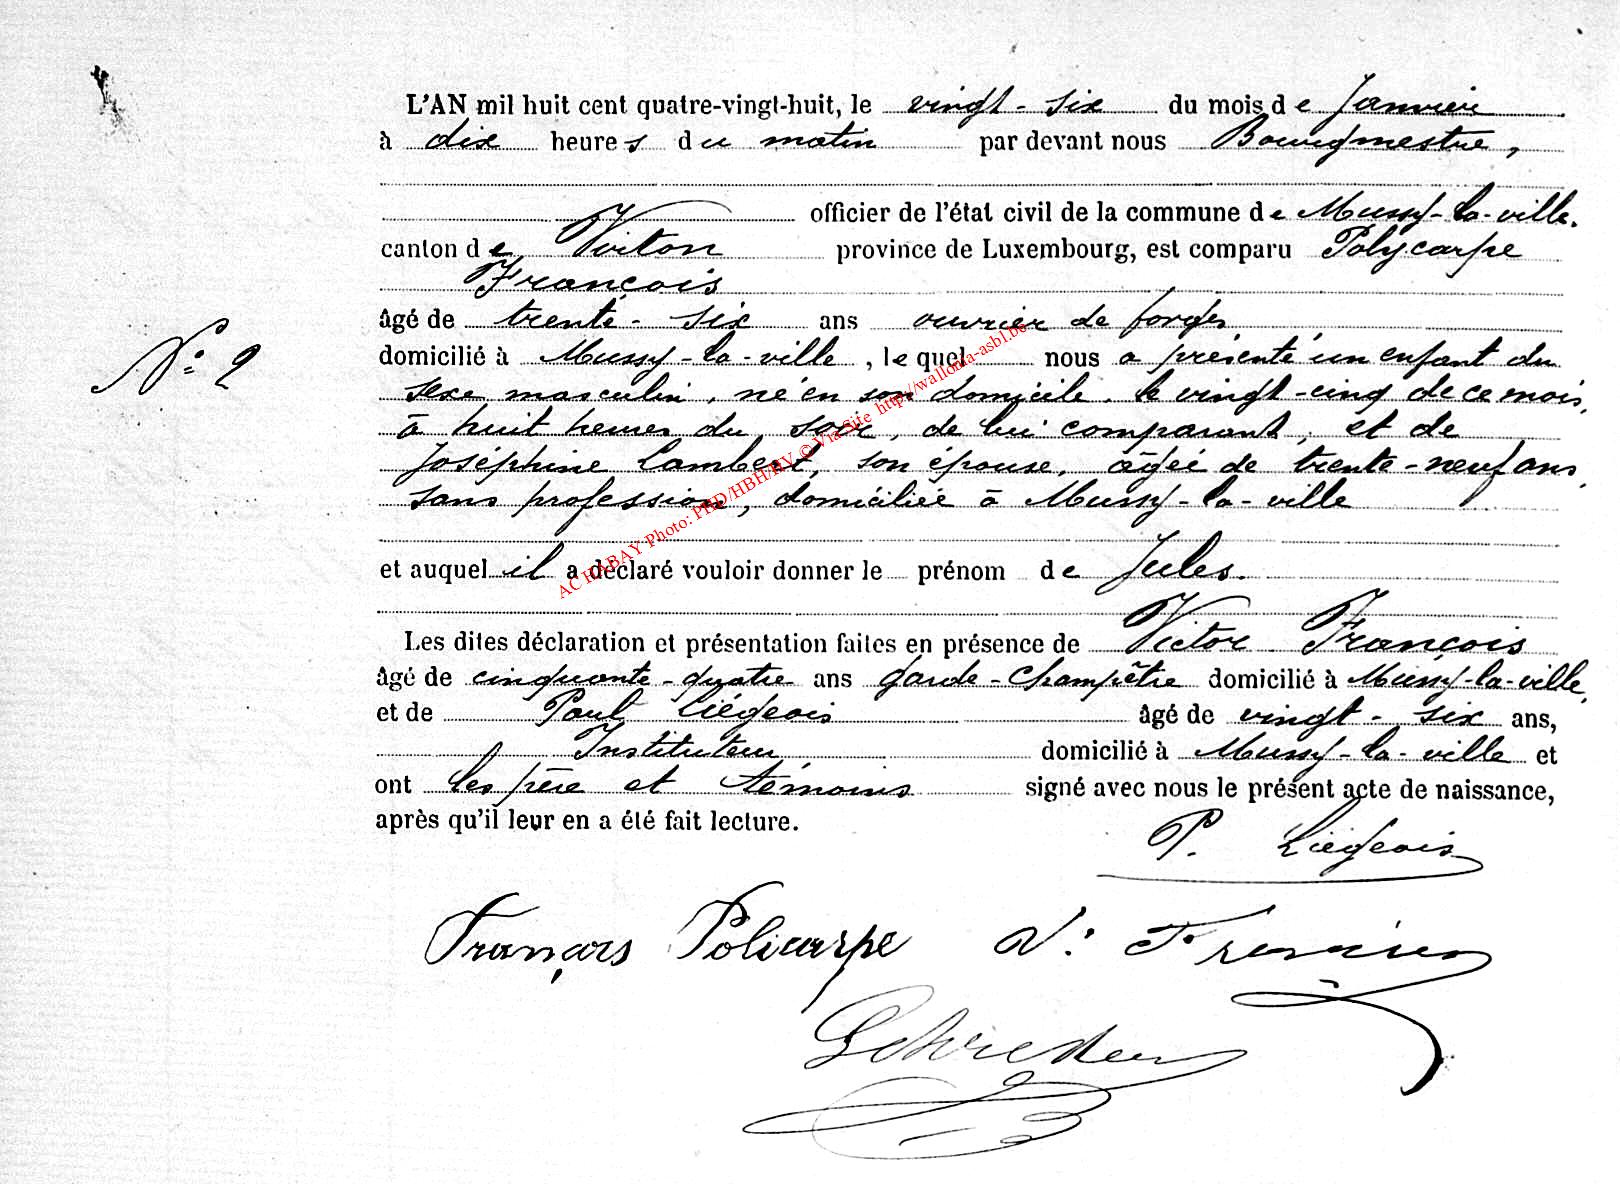 L'AN mil huit cent quatre-vingt-huit, le vingt-six du mois de Janvier
à dix heures du matin par devant nous Bourgmestre,
officier de l'état civil de la commune de Mussy-la-ville.
canton de Virton province de Luxembourg, est comparu Polycarpe
François
âgé de trente-six ans ouvrier de forges
N° 2
domicilié à Mussy-la-ville, lequel nous a présenté un enfant du
sexe masculin, né en son domicile, le vingt-cinq de ce mois,
à huit heures du soir, de lui comparant, et de
Joséphine Lambert, son épouse, âgée de trente-neuf ans,
sans profession, domiciliée à Mussy-la-ville
et auquel il a déclaré vouloir donner le prénom de Jules.
AC HABAY Photo: PHD/HBH/HV © Via Site http://wallonia-asbl.be
Les dites déclaration et présentation faites en présence de Victor François
âgé de cinquante-quatre ans garde-champêtre domicilié à Mussy-la-ville,
et de Paul Liégeois âgé de vingt-six ans,
Instituteur domicilié à Mussy-la-ville et
ont les père et témoins signé avec nous le présent acte de naissance,
après qu'il leur en a été fait lecture.
P. Liégeois
François Policarpe V. François